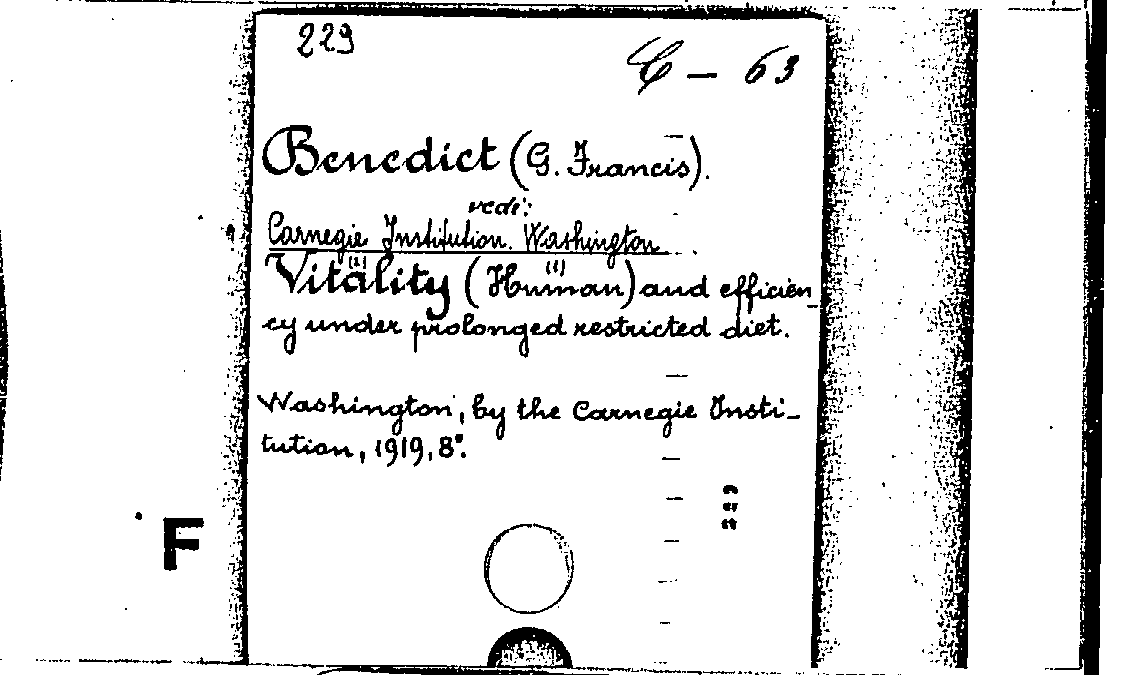 229
C - 63
Benedict (G. Francis).
vedi:
Carnegie Institution. Washington
Vitality (Human) and efficien_
(2) (1)
cy under prolonged restricted diet.
Washington, by the Carnegie Insti-
tution, 1919, 8°.
F